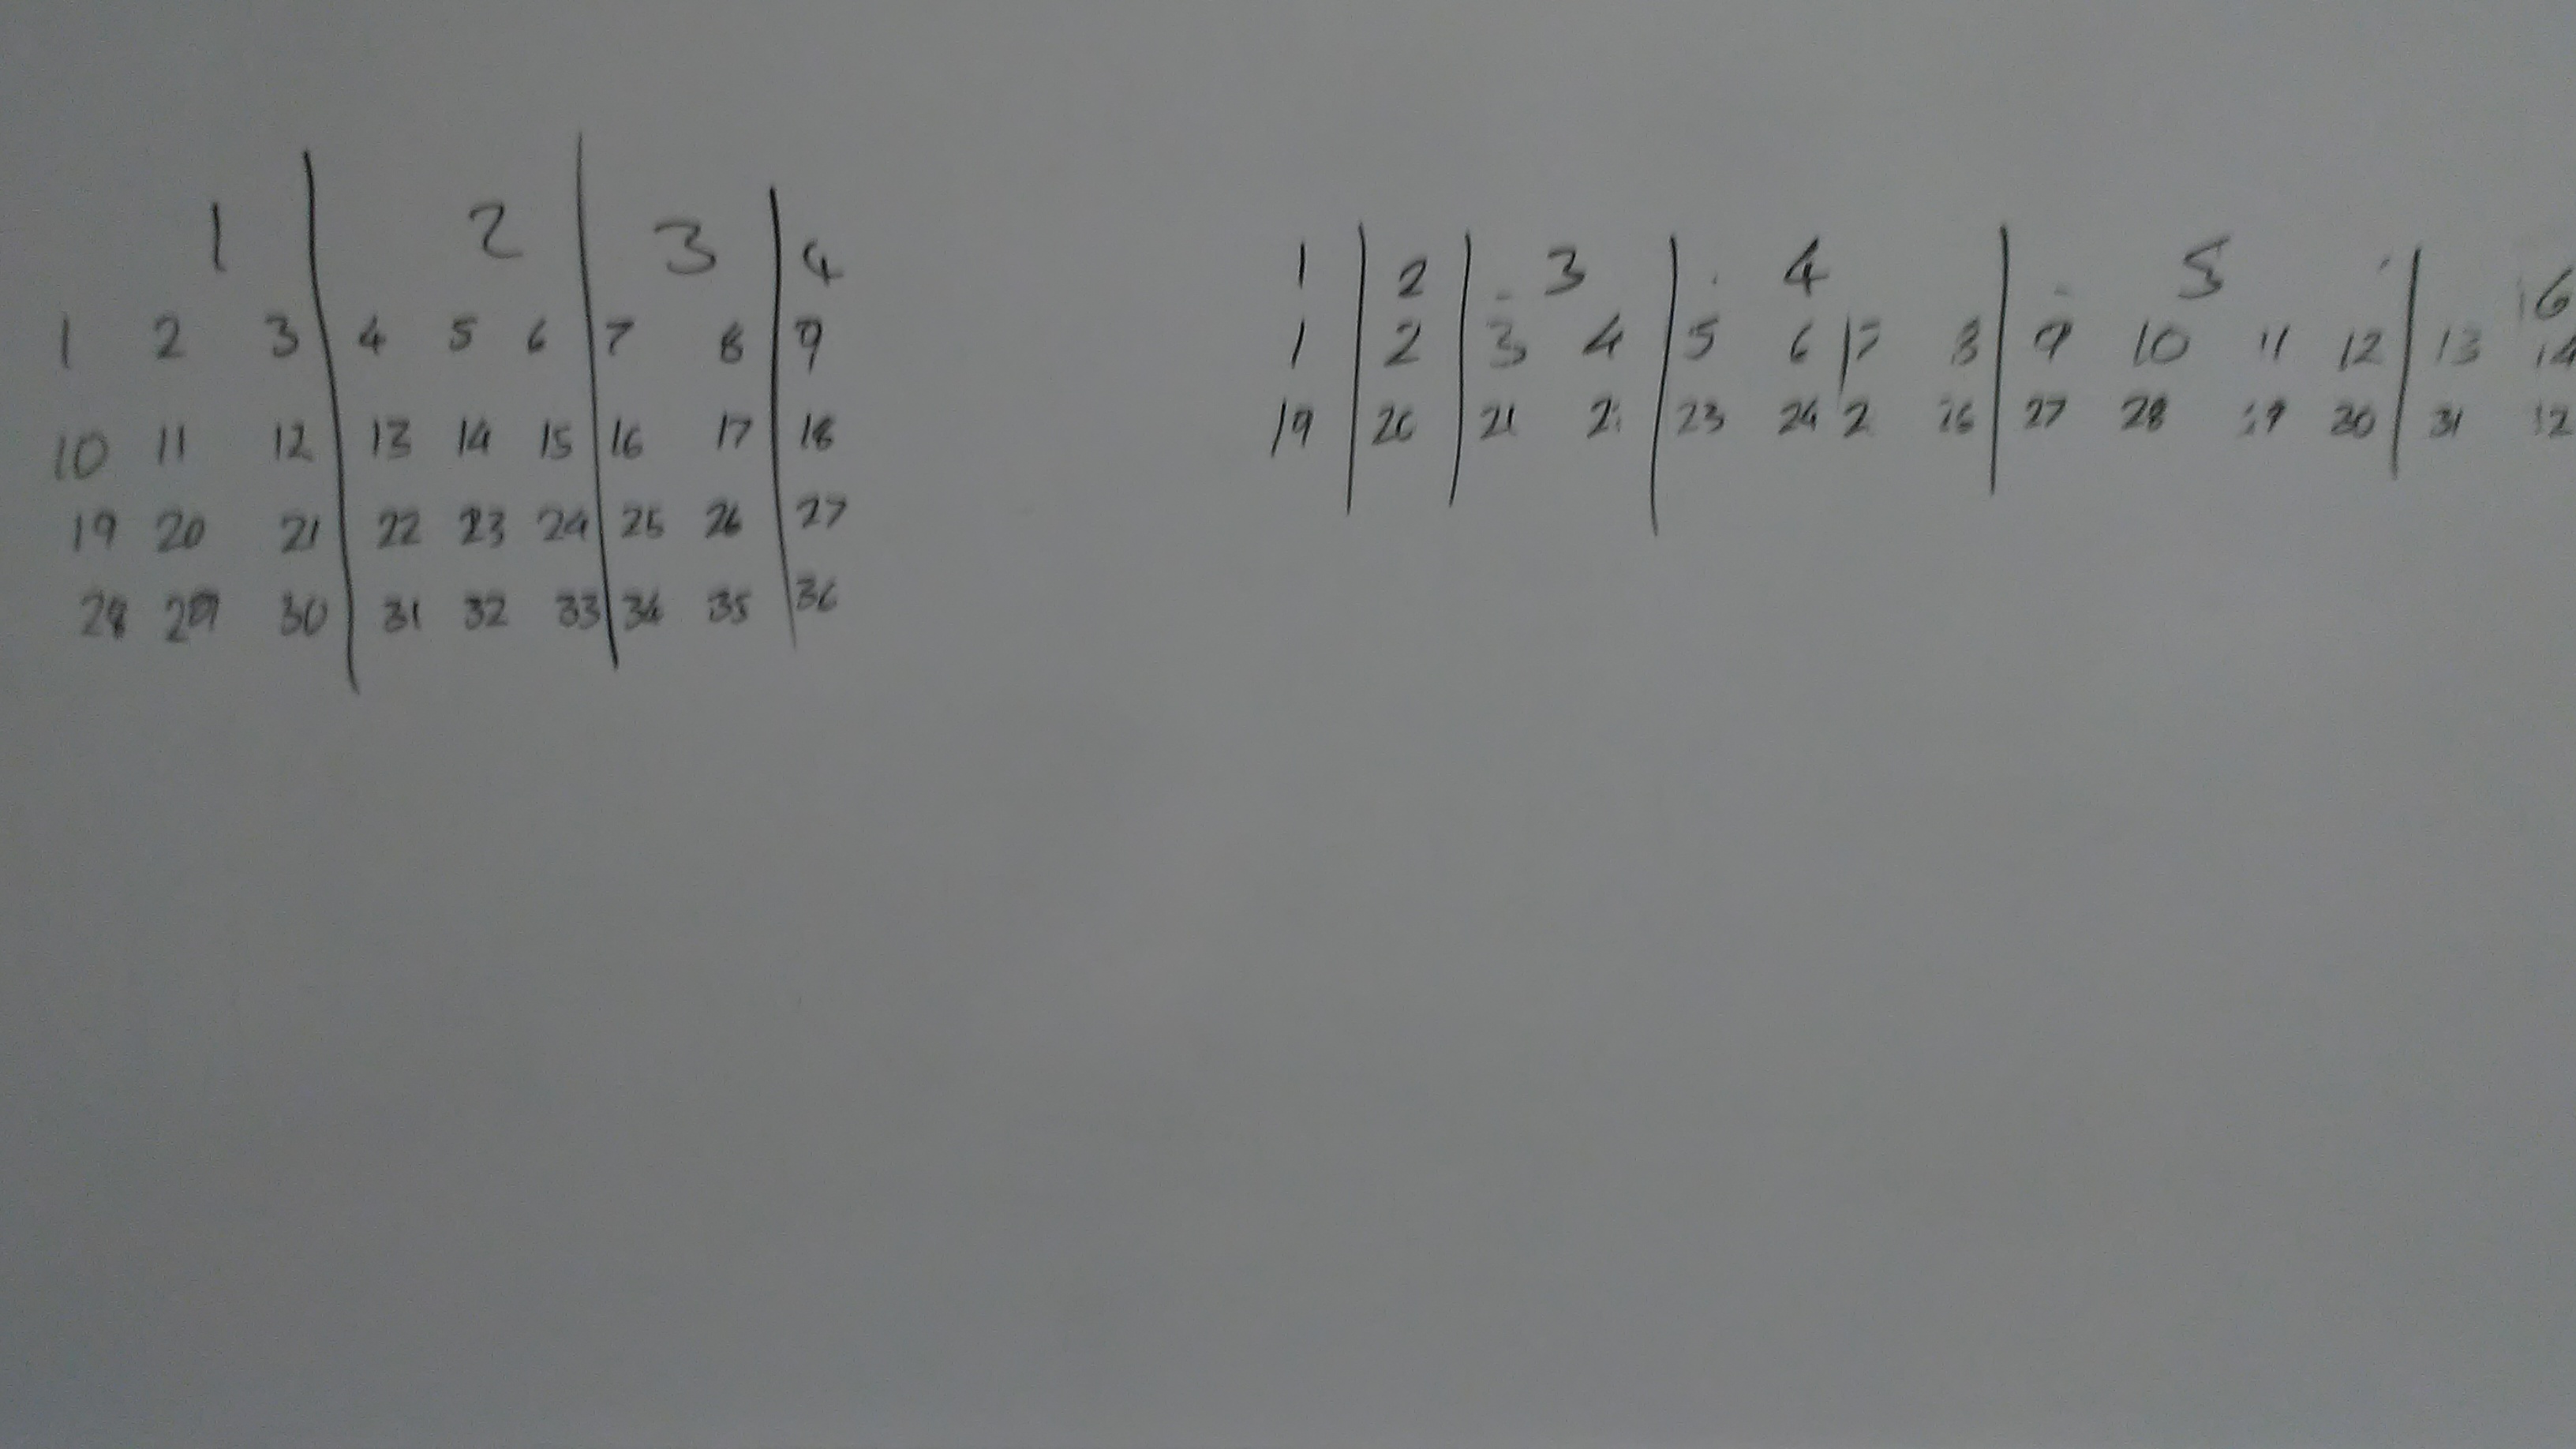 1 2 3 4
1 2 3 4 5 6 7 8 9
10 11 12 13 14 15 16 17 18
19 20 21 22 23 24 25 26 27
28 29 30 31 32 33 34 35 36
1 2 3 4 5 6
1 2 3 4 5 6 7 8 9 10 11 12 13 14
19 20 21 2 23 24 2 26 27 28 29 30 31